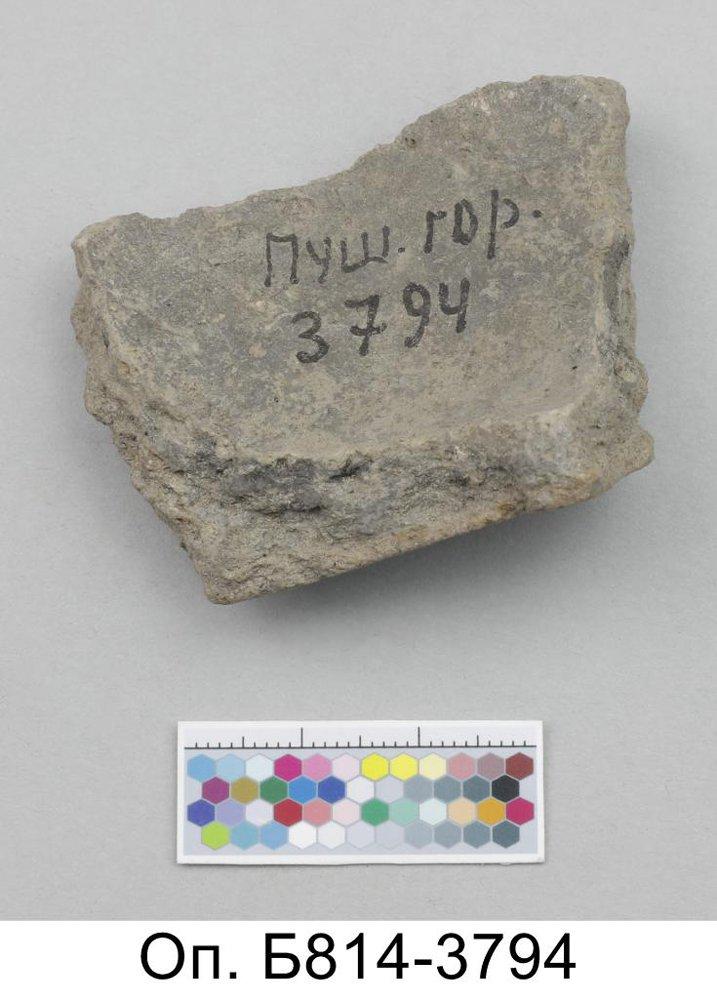 Пуш. гор.
3794
Оп. Б814-3794